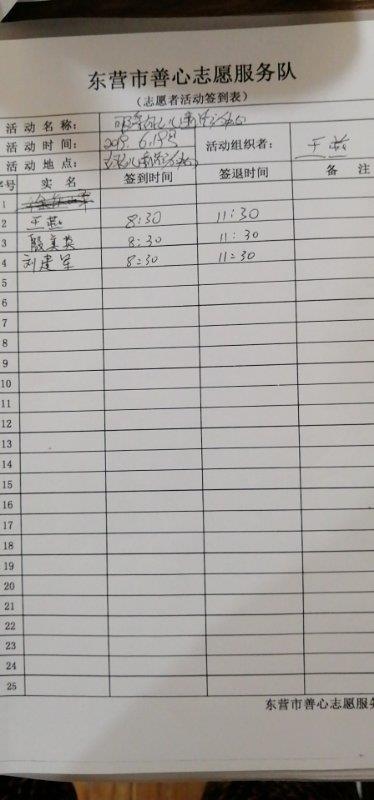 东营市善心志愿服务队
(志愿者活动签到表)
活动名称:
活动时间: 活动组织者: 王燕
活动地点:
序号 实名 签到时间 签退时间 备注
1
2 王燕 8:30 11:30
3 殷真英 8:30 11:30
4 刘建军 8:30 11:30
5
6
7
8
9
10
11
12
13
14
15
16
17
18
19
20
21
22
23
24
25
东营市善心志愿服务